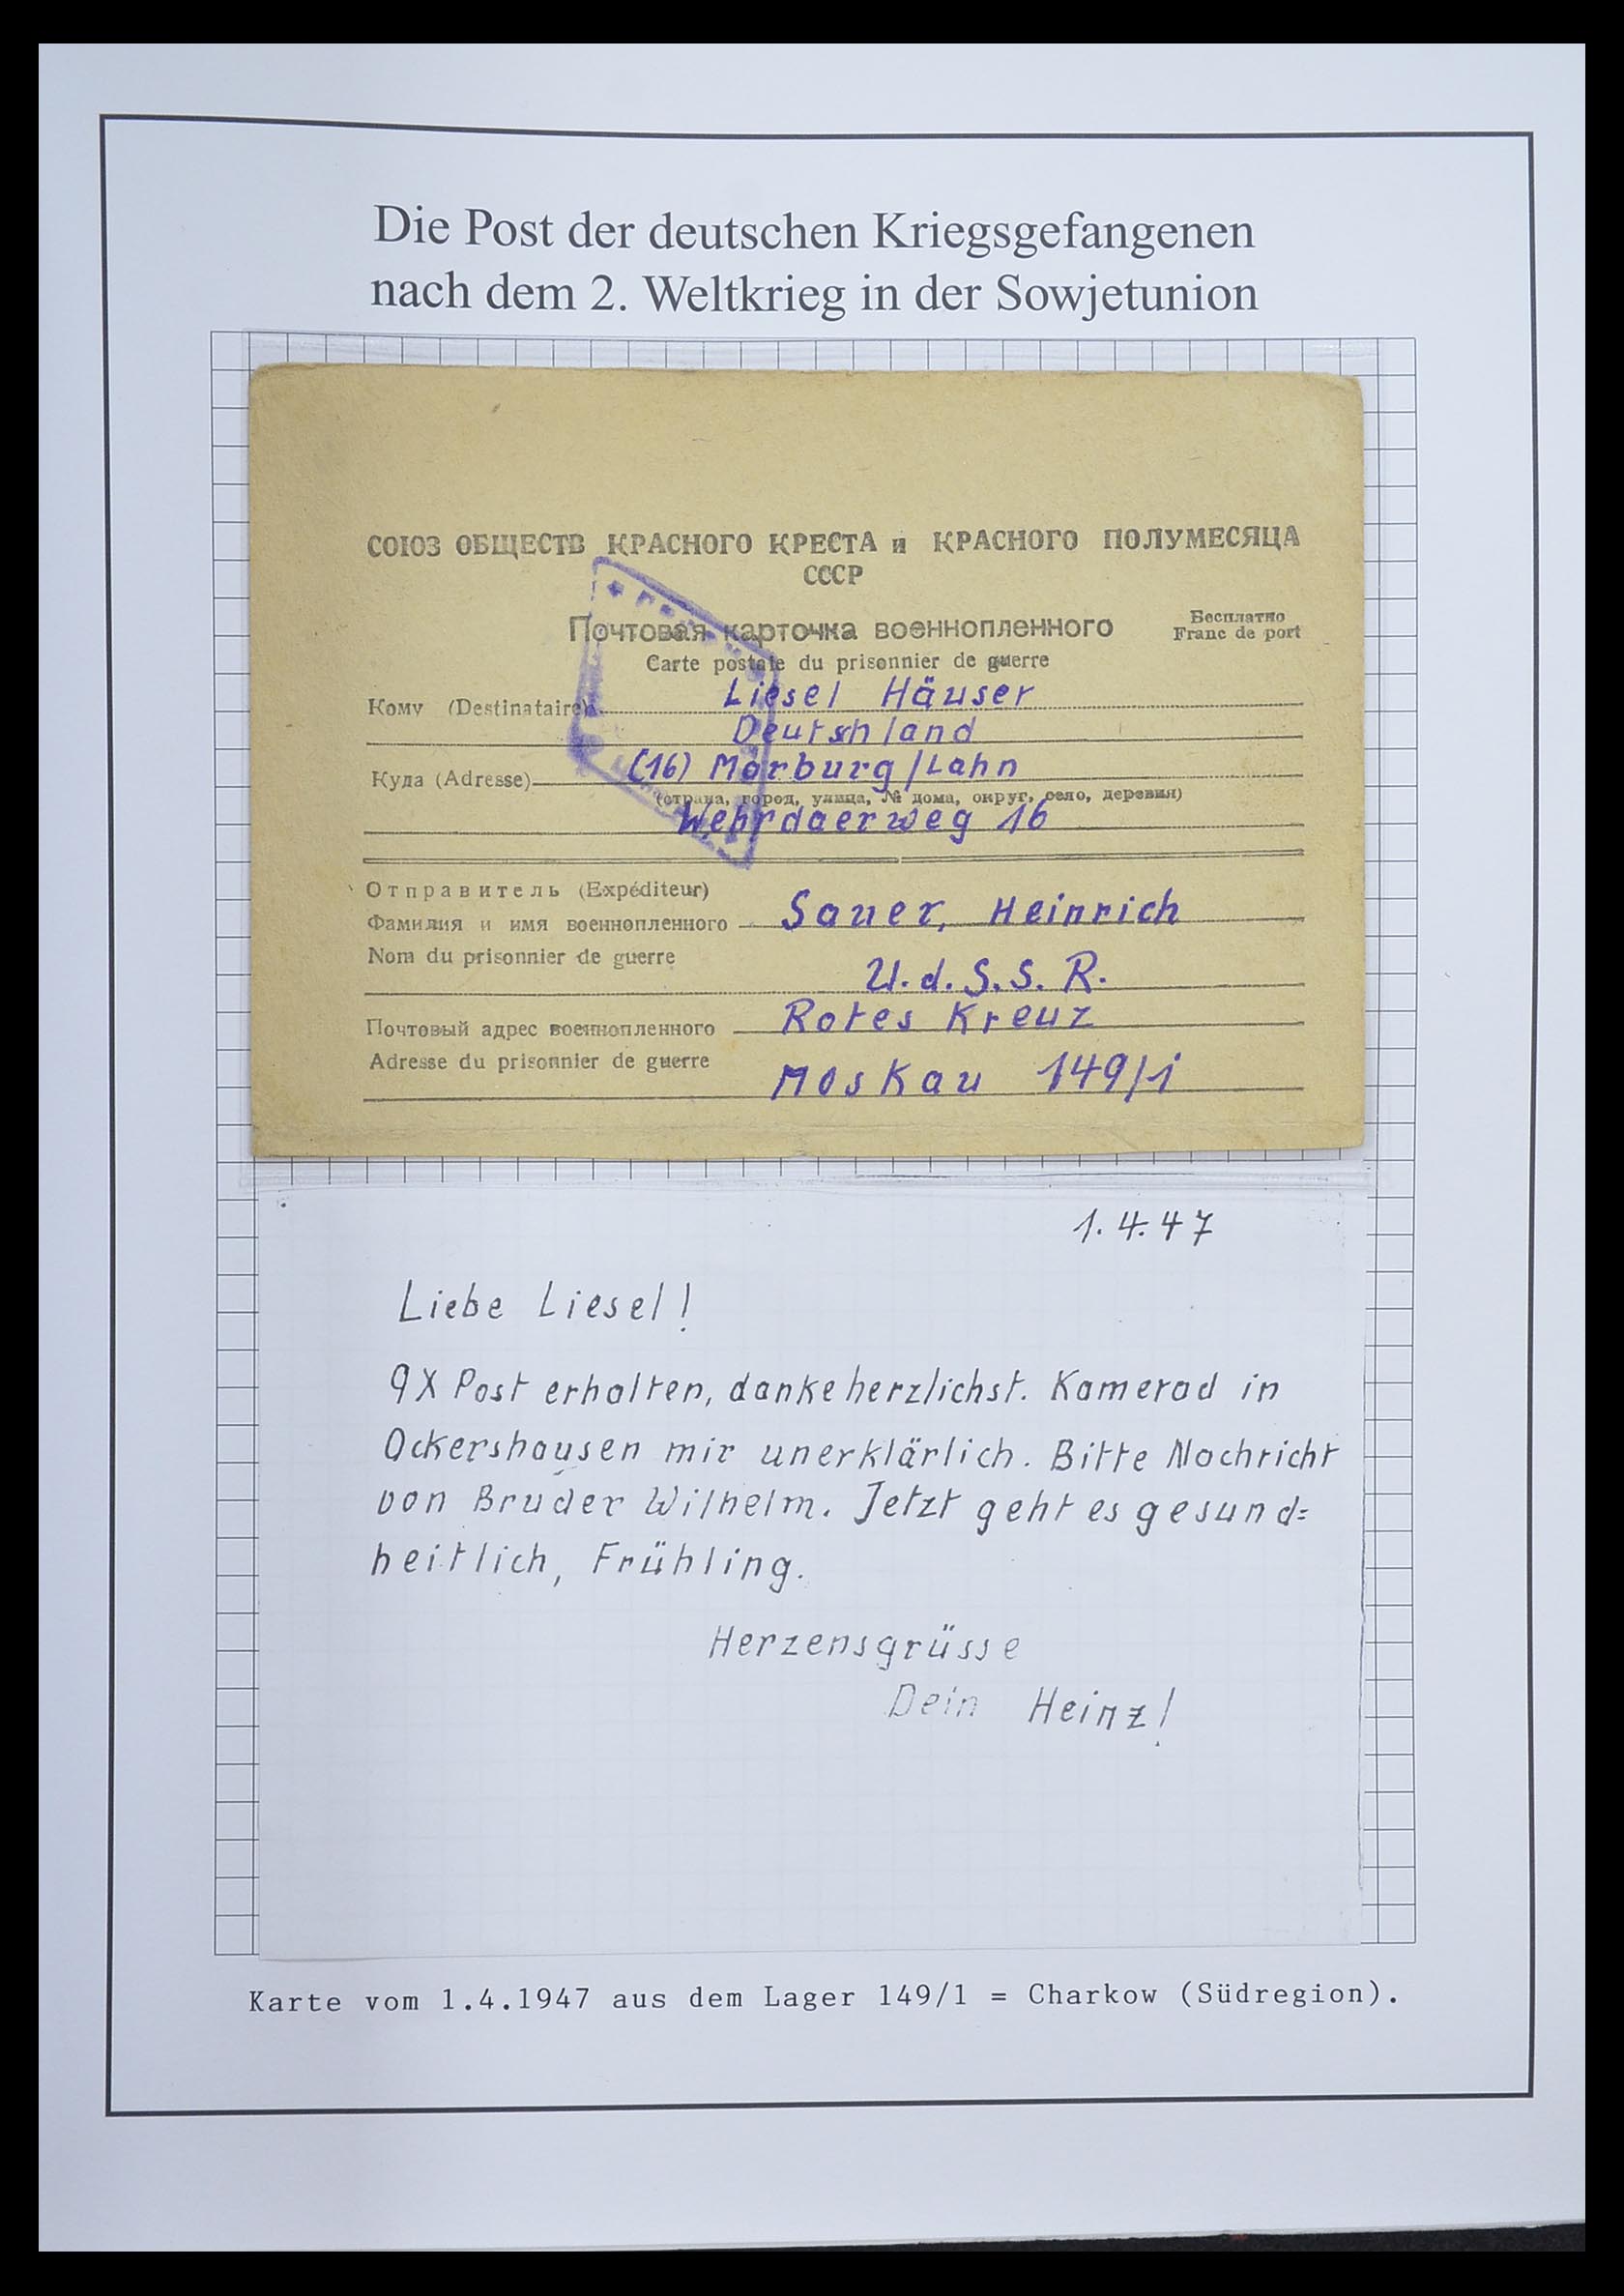 Die Post der deutschen Kriegsgefangenen
nach dem 2. Weltkrieg in der Sowjetunion
СОЮЗ ОБЩЕСТВ КРАСНОГО КРЕСТА и КРАСНОГО ПОЛУМЕСЯЦА
СССР
Почтовая карточка военнопленного
Бесплатно
Franc de port
Carte postale du prisonnier de guerre
Кому (Destinataire) Liesel Häuser
Deutschland
Куда (Adresse) (16) Marburg/Lahn
(страна, город, улица, № дома, округ, село, деревня)
Wehrdaerweg 16
Отправитель (Expéditeur)
Фамилия и имя военнопленного Sauer, Heinrich
Nom du prisonnier de guerre
U.d.S.S.R.
Почтовый адрес военнопленного Rotes Kreuz
Adresse du prisonnier de guerre
Moskau 149/1
1.4.47
Liebe Liesel!
9X Post erhalten, danke herzlichst. Kamerad in
Ockershausen mir unerklärlich. Bitte Nachricht
von Bruder Wilhelm. Jetzt geht es gesund=
heitlich, Frühling.
Herzensgrüsse
Dein Heinz!
Karte vom 1.4.1947 aus dem Lager 149/1 = Charkow (Südregion).